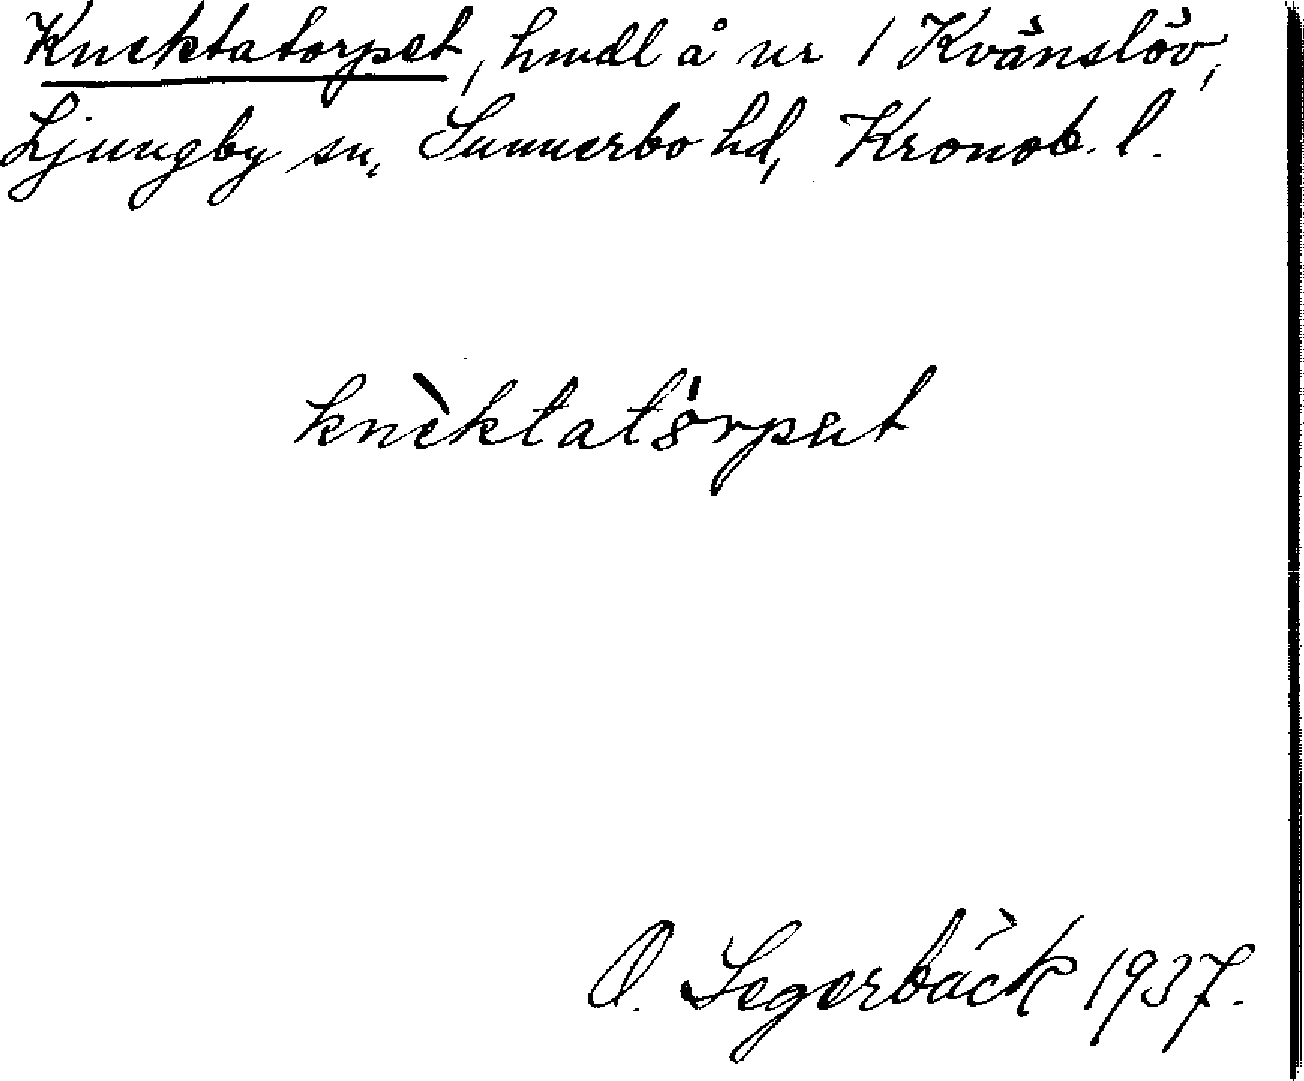 Knektatorpet, hmdl å nr 1 Kvänslöv,
Ljungby sn, Sunnerbo hd, Kronob. l.
knèktatórpət
O. Segerbäck 1937.